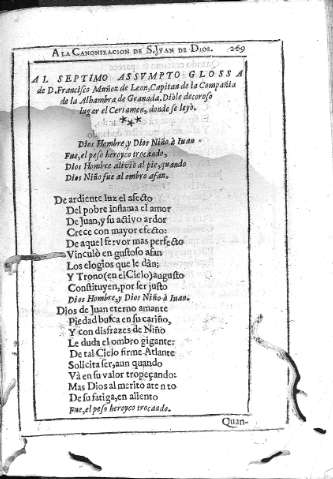 A LA CANONIZACION DE S. JVAN DE DIOS. 269
AL SEPTIMO ASSVMPTO GLOSSA
de D. Francisco Muñoz de Leon, Capitan de la Compañia
de la Alhambra de Granada. Diòle decoroso
lugar el Certamen, donde se leyò.
***
Dios Hombre, y Dios Niño à Iuan
Fue, el peso heroyco trocando,
Dios Hombre al pie, quando
Dios Niño fue al ombro afan.
De ardiente luz el afecto
Del pobre inflama el amor
De Juan, y su activo ardor
Crece con mayor efecto:
De aquel fervor mas perfecto
Vinculò en gustoso afan
Los elogios que le dàn;
Y Trono (en el Cielo) augusto
Constituyen, por ser justo
Dios Hombre, y Dios Niño à Iuan.
Dios de Juan eterno amante
Piedad busca en su cariño,
Y con disfrazes de Niño
Le duda el ombro gigante:
De tal Cielo firme Atlante
Solicita ser, aun quando
Và en su valor tropeçando:
Mas Dios al merito atento
De su fatiga, en aliento
Fue, el peso heroyco trocando.
Quan-